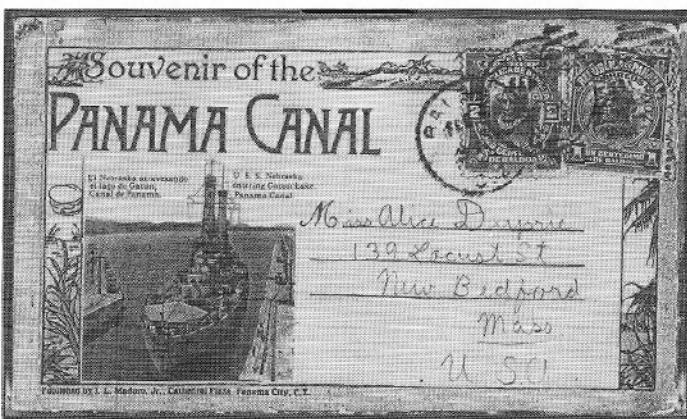 Souvenir of the
PANAMA CANAL
El Nebraska atravesando
el lago de Gatun,
Canal de Panamá.
U. S. S. Nebraska
entering Gatun Lake
Panama Canal
Miss Alice
139 Locust St
New Bedford
Mass
U. S. A.
Published by I. L. Maduro, Jr., Cathedral Plaza, Panama City, C.Z.
2
2
DE BALBOA
1
UN CENTESIMO
1
DE BALBOA